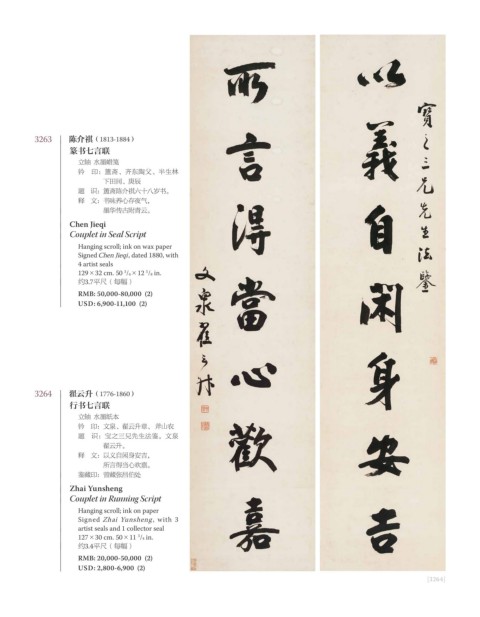 3263
陈介祺（1813-1884）
篆书七言联
立轴 水墨蜡笺
钤 印：簠斋、齐东陶父、半生林
下田间、庚辰
题 识：簠斋陈介祺六十八岁书。
释 文：书味养心存夜气，
附青云。
Chen Jieqi
Couplet in Seal Script
Hanging scroll; ink on wax paper
Signed Chen Jieqi, dated 1880, with
4 artist seals
129 × 32 cm. 50 3/4 × 12 5/8 in.
约3.7平尺（每幅）
RMB: 50,000-80,000 (2)
USD: 6,900-11,100 (2)
3264
翟云升（1776-1860）
行书七言联
立轴 水墨纸本
钤 印：文泉、翟云升章、
题 识：宝之三兄先生法鉴。文泉
翟云升。
释 文：以义自闲身安吉，
所言得当心欢嘉。
鉴藏印：曾藏
Zhai Yunsheng
Couplet in Running Script
Hanging scroll; ink on paper
Signed Zhai Yunsheng, with 3
artist seals and 1 collector seal
127 × 30 cm. 50 × 11 3/4 in.
约3.4平尺（每幅）
RMB: 20,000-50,000 (2)
USD: 2,800-6,900 (2)
寶之三兄先生法鑒
以義自閑身安吉
所言得當心歡嘉
文泉翟云升
[3264]